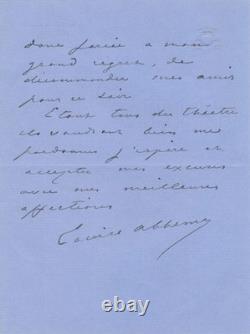 donc forcée a mon
grand regret, de
décommander mes amis
pour ce soir
Etant tous du théâtre
ils voudront bien me
pardonner j'espère et
accepter mes excuses
avec mes meilleures
affections
Louise Abbema